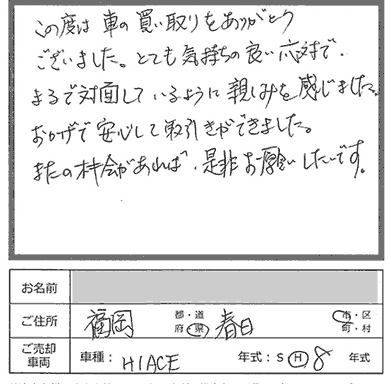 この度は車の買い取りをありがとう
ございました。とても気持ちの良い応対で、
まるで対面しているように親しみを感じました。
おかげで安心して取引きができました。
またの機会があれば、是非お願いしたいです。
お名前
ご住所 福岡 都・道 府・県 春日 市・区 町・村
ご売却車両 車種： HIACE 年式：S H 8 年式